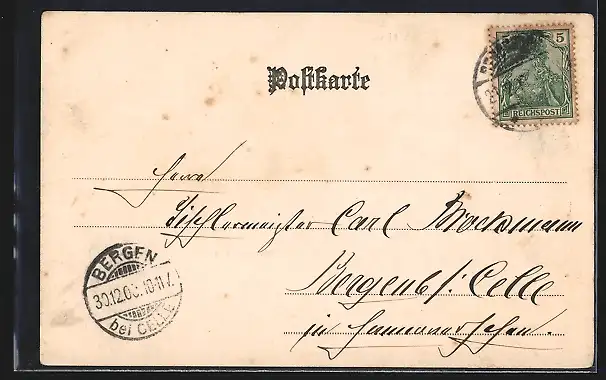 5
REICHSPOST
Postkarte
Herrn
Tischlermeister Carl Brockmann
Bergen b/ Celle
in Hannover
BERGEN
30.12.00. 10-11 V.
bei CELLE